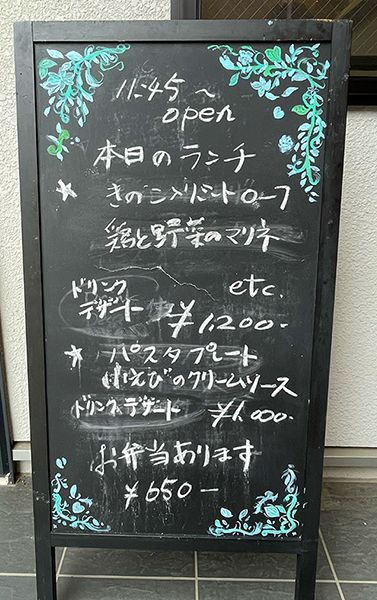 11:45〜
open
本日のランチ
★ きのこ入りミートローフ
鶏と野菜のマリネ
etc.
ドリンク
デザート ¥1,200-
★ パスタプレート
小えびのクリームソース
ドリンク、デザート ¥1,000-
お弁当あります
¥650-